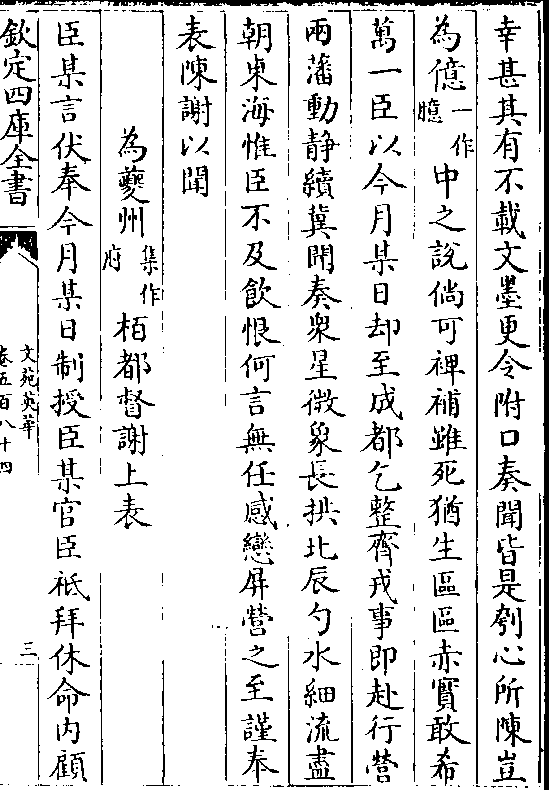 幸甚其有不載文墨更令附口奏聞皆是刳心所陳豈
為億一作臆中之說倘可裨補雖死猶生區區赤實敢希
萬一臣以今月某日却至成都乞整齊戎事即赴行營
兩藩動静續冀聞奏衆星微象長拱北辰勺水細流盡
朝東海惟臣不及飲恨何言無任感戀屏營之至謹奉
表陳謝以聞
為夔州集作府柏都督謝上表
臣某言伏奉今月某日制授臣某官臣祗拜休命内顧
欽定四庫全書
文苑英華
卷五百八十四
三